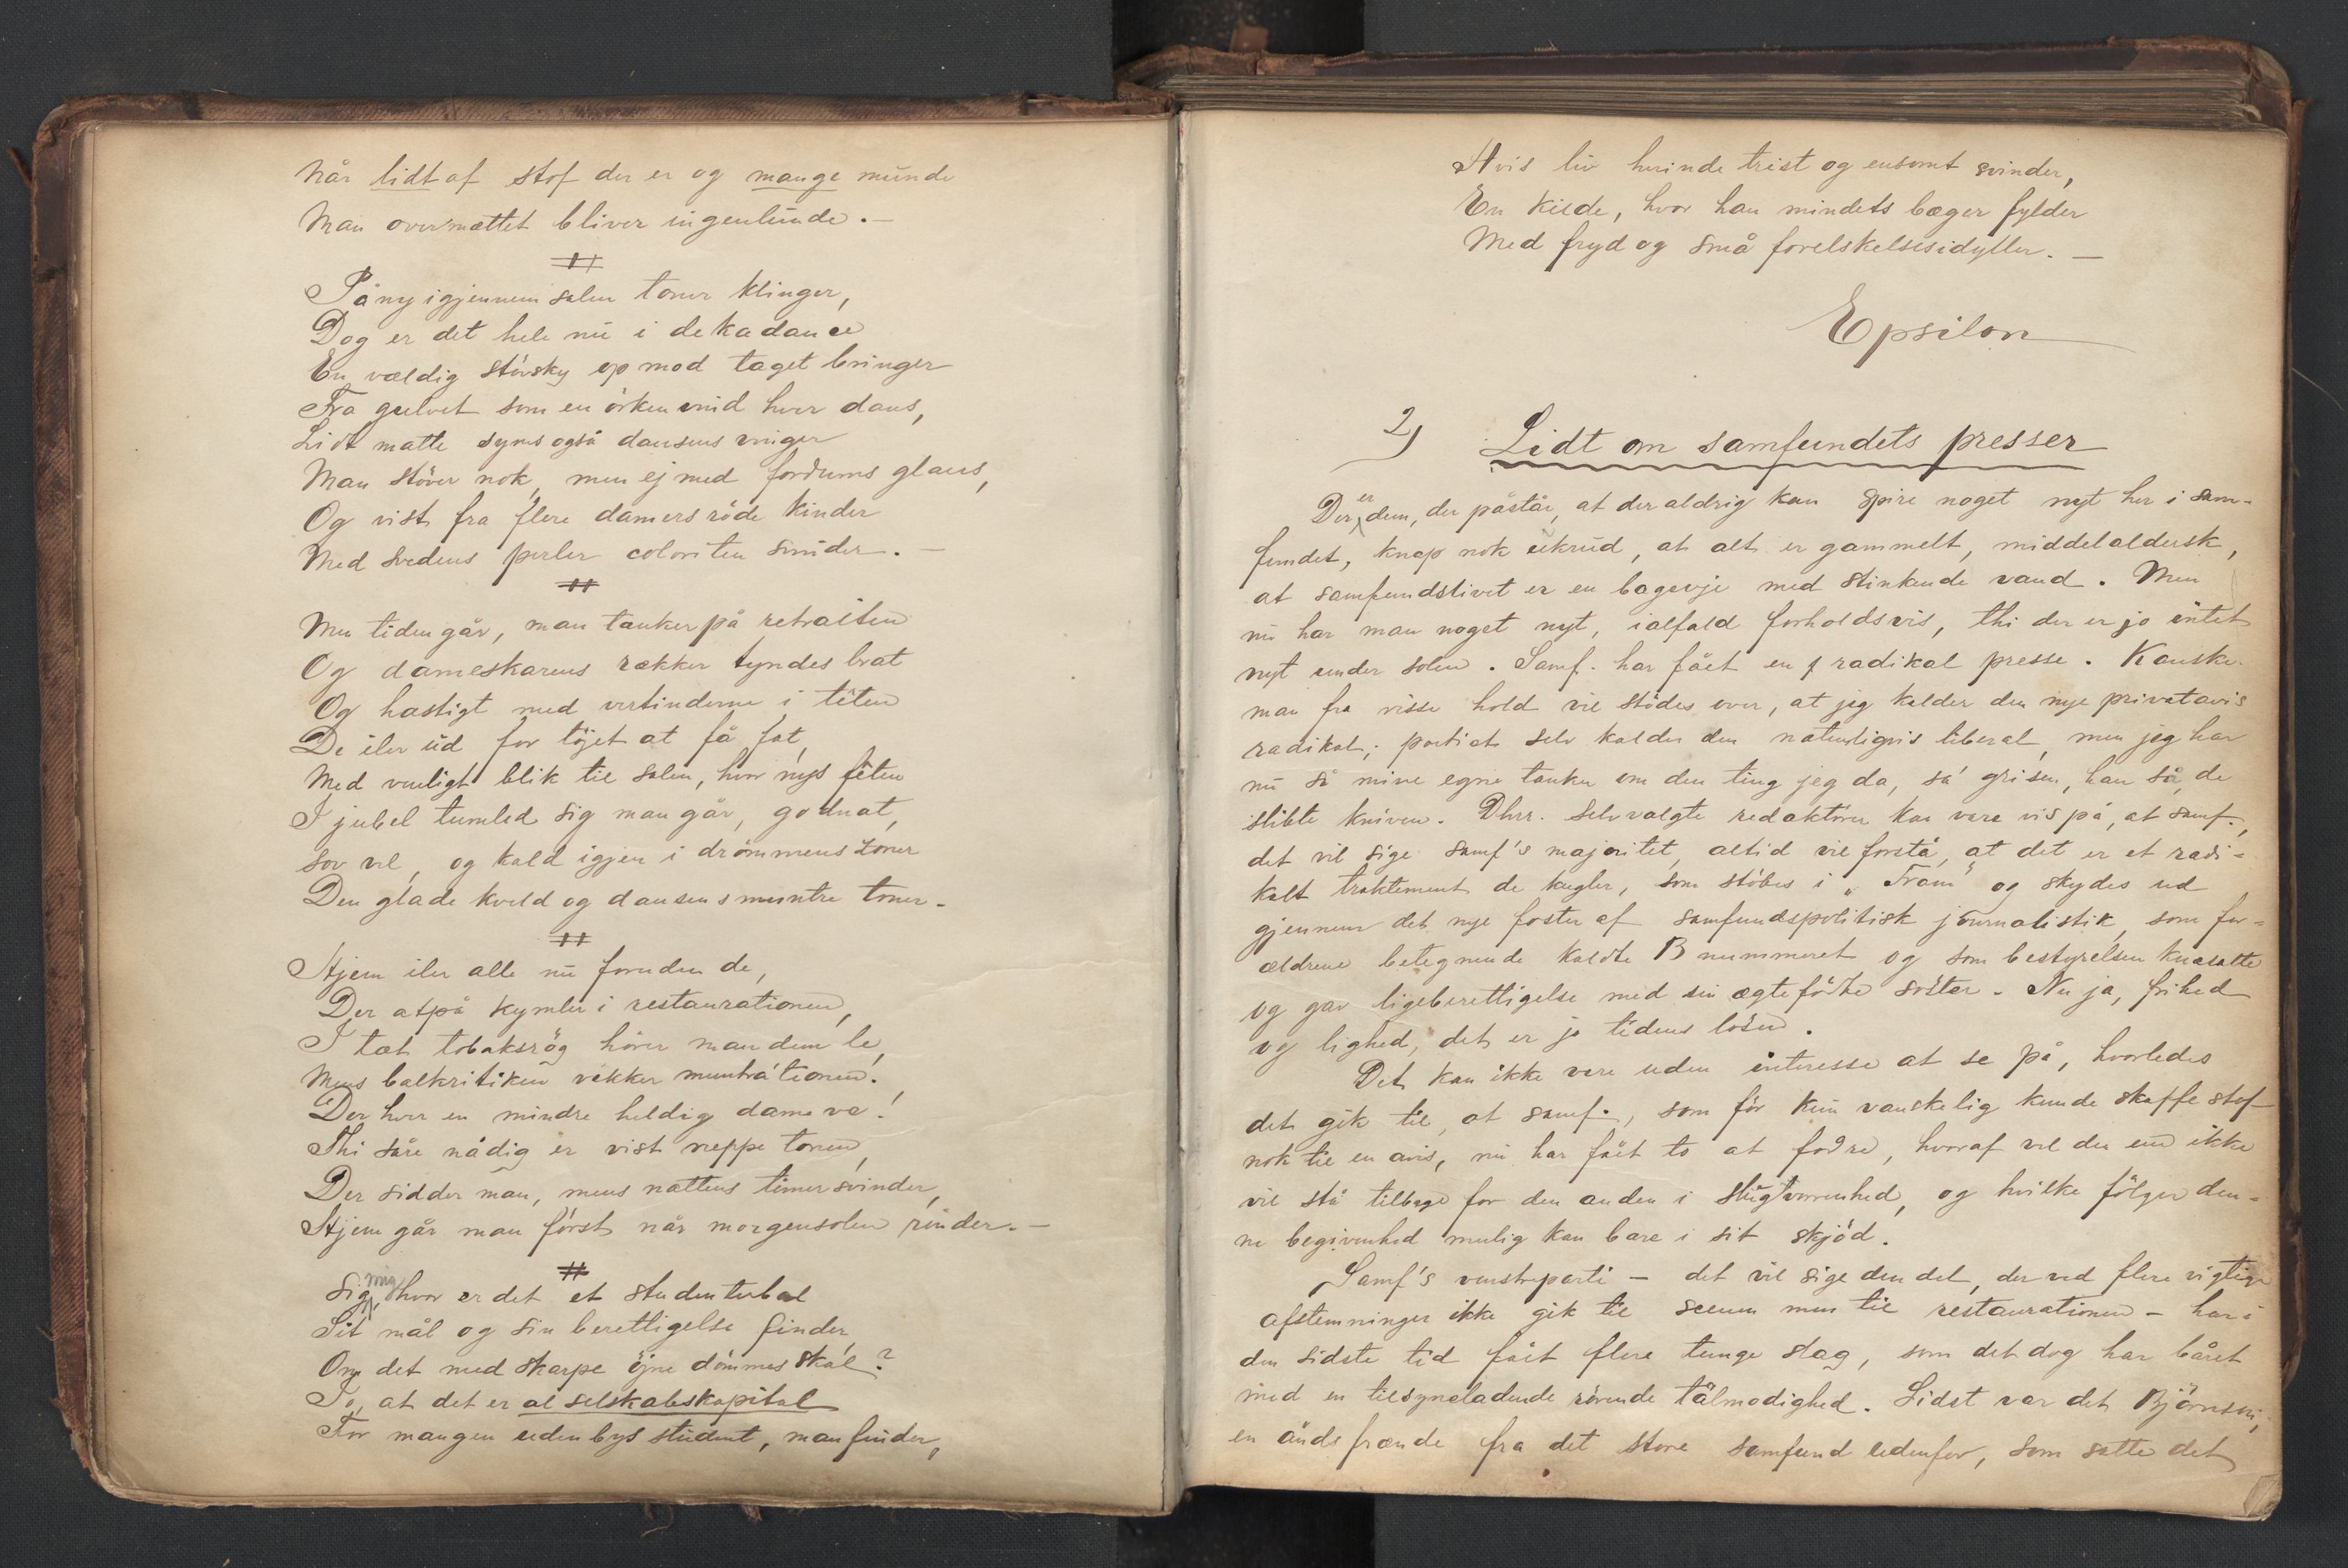 Når lidt af stof der er og mange munde
Man overmættet bliver ingenlunde. —
Påny igjennem salen toner klinger,
Dog er det hele nu i dekadance
En vældig støvsky op mod taget bringer
Fra gulvet som en ørkenvind hver dans,
Lidt matte synes også dansens vinger
Man støver nok, men ej med fordums glans,
Og vist fra flere damers røde kinder
Med svedens perler coloriten svinder. —
Men tiden går, man tænker på retraiten
Og dameskarens rækker tyndes brat
Og hastigt med vertinderne i têten
De iler ud for tøjet at få fat,
Med venligt blik til salen, hvor nys fêten
I jubel tumled sig man går, godnat,
Sov vel, og kald igjen i drømmens zoner
Den glade kveld og dansens muntre toner.
Hjem iler alle nu foruden de,
Der atpå kymler i restaurationen,
I tæt tobaksrøg hører man dem le,
Mens balkritiken vækker munterationen.
Der hver en mindre heldig dame ve!
Thi såre nådig er vist neppe tonen,
Der sidder man, mens nattens timer svinder,
Hjem går man først når morgensolen rinder. —
Sig mig hvor er det et studenterbal
Sit mål og sin berettigelse finder,
Om det med skarpe øjne dømmes skal?
Jo, at det er al selskabskapital
For mangen udenbys student, man finder,
Hvis liv herinde trist og ensomt svinder,
En kilde, hvor han mindets bæger fylder
Med fryd og små forelskelsesidyller. —
Epsilon
2) Lidt om samfundets presser
Der er dem, der påstår, at der aldrig kan spire noget nyt her i sam-
fundet, knap nok ukrud, at alt er gammelt, middelaldersk,
at samfundslivet er en bagevje med stinkende vand. Men
nu har man noget nyt, ialfald forholdsvis, thi der er jo intet
nyt under solen. Samf. har fået en radikal presse. Kanske
man fra visse hold vil stødes over, at jeg kalder den nye privatavis
radikal; partiet selv kalder den naturligvis liberal, men jeg har
nu så mine egne tanker om den ting jeg da, sa' grisen, han så de
slibte kniven. Dhrr. selvvalgte redaktører kan være vis på, at samf.,
det vil sige samf's majoritet, altid vil forstå, at det er et radi-
kalt traktement de kugler, som støbes i „Fram" og skydes ud
gjennem det nye foster af samfundspolitisk journalistik, som for-
ældrene betegnende kaldte B nummeret og som bestyrelsen knæsatte
og gav ligeberettigelse med sin ægtefødte søster. Nu ja, frihed
og lighed, det er jo tidens løsen.
Det kan ikke være uden interesse at se på, hvorledes
det gik til, at samf., som før kun vanskelig kunde skaffe stof
nok til en avis, nu har fået to at fodre, hvoraf vel den ene ikke
vil stå tilbage for den anden i slugvorrenhed, og hvilke følger den-
ne begivenhed mulig kan bære i sit skjød.
Samf's venstreparti — det vil sige den del, der ved flere vigtige
afstemninger ikke gik til scenen men til restaurationen — har i
den sidste tid fået flere tunge slag, som det dog har båret
med en tilsyneladende rørende tålmodighed. Sidst var det Bjørnson,
en åndsfrænde fra det store samfund udenfor, som satte det